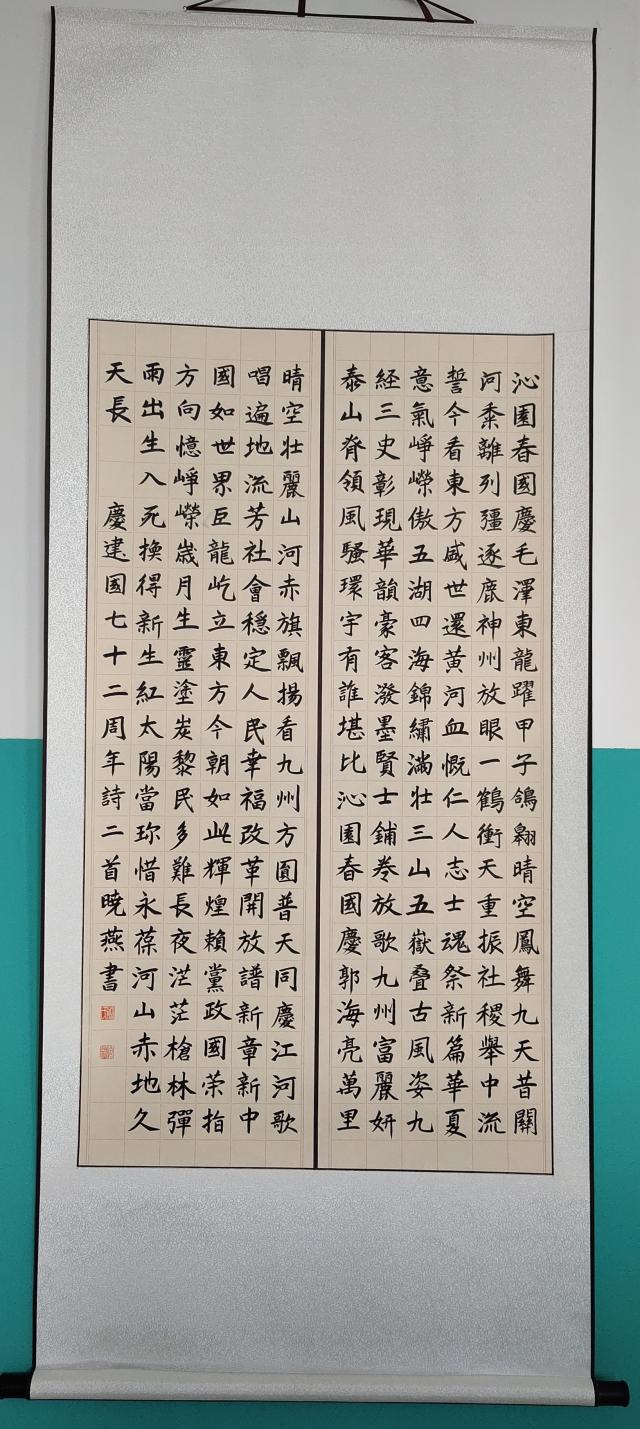 沁園春國慶毛澤東龍躍甲子鴿翱晴空鳳舞九天昔關
河黍離列彊逐鹿神州放眼一鶴衝天重振社稷舉中流
誓今看東方盛世還黄河血慨仁人志士魂祭新篇華夏
意氣崢嶸傲五湖四海錦繡滿壯三山五嶽叠古風姿九
経三史彰現華韻豪客潑墨賢士鋪卷放歌九州富麗妍
泰山脊領風騷環宇有誰堪比沁園春國慶郭海亮萬里
晴空壯麗山河赤旗飄揚看九州方圓普天同慶江河歌
唱遍地流芳社會穩定人民幸福政革開放譜新章新中
國如世界巨龍屹立東方今朝如此輝煌賴黨政國荣指
方向憶崢嶸歲月生靈塗炭黎民多難長夜茫茫槍林彈
雨出生入死換得新生紅太陽當珍惜永葆河山赤地久
天長 慶建國七十二周年詩二首曉燕書